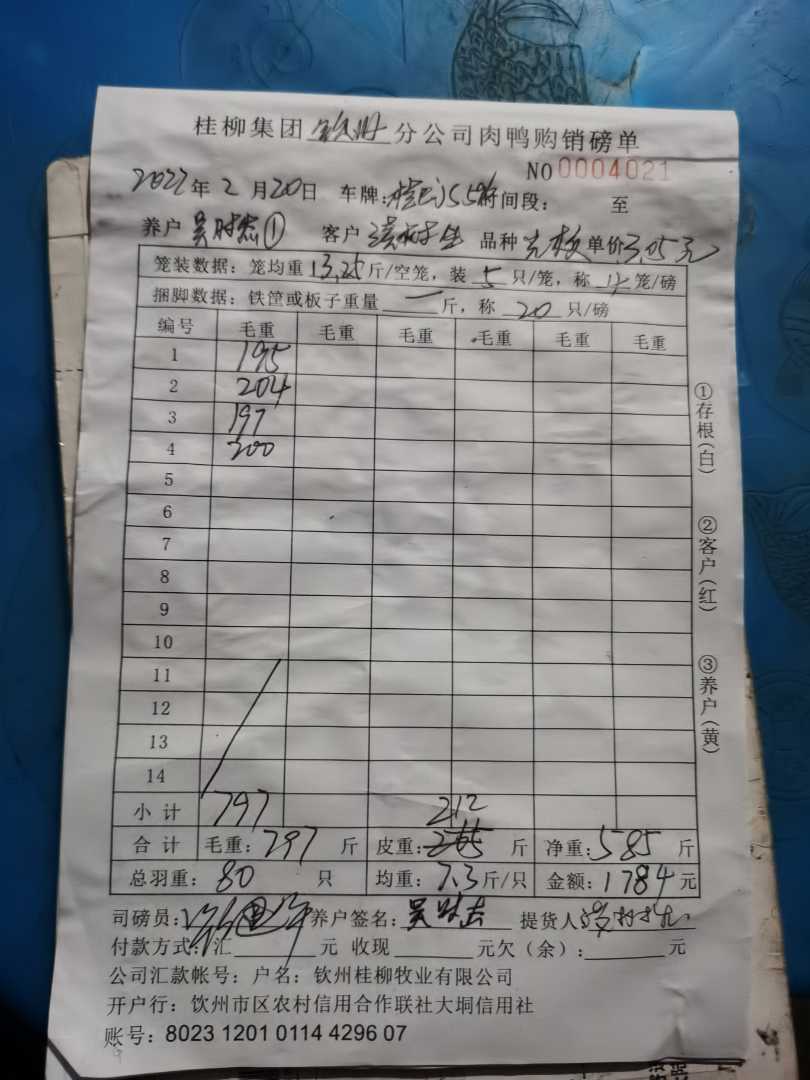 桂柳集团 钦州 分公司肉鸭购销磅单
NO 0004021
2022年2月20日 车牌: 时间段: 至
养户 吴时杰① 客户 品种 单价3.05元
笼装数据：笼均重13.25斤/空笼，装5只/笼，称4笼/磅
捆脚数据：铁筐或板子重量一斤，称20只/磅
编号 毛重 毛重 毛重 毛重 毛重 毛重
1 195
2 204
3 197
4 200
5
6
7
8
9
10
11
12
13
14
小计 797 212
合计 毛重：797斤 皮重： 斤 净重：585斤
总羽重：80只 均重：7.3斤/只 金额：1784元
司磅员： 养户签名：吴时杰 提货人
付款方式：汇 元 收现 元欠（余）： 元
公司汇款帐号：户名：钦州桂柳牧业有限公司
开户行：饮州市区农村信用合作联社大垌信用社
账号：8023 1201 0114 4296 07
①存根（白）
②客户（红）
③养户（黄）